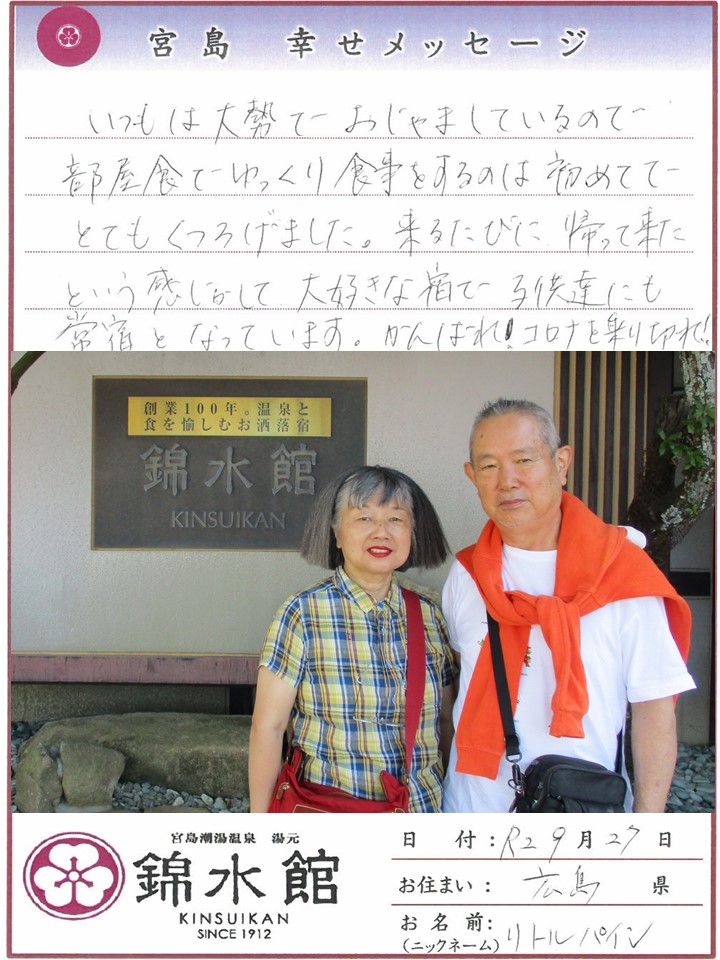 宮島 幸せメッセージ
いつもは大勢でおじゃましているので
部屋食でゆっくり食事をするのは初めてで
とてもくつろげました。来るたびに帰って来た
という感じがして大好きな宿で子供達にも
常宿となっています。がんばれ!コロナを乗り切れ!
創業100年。温泉と
食を愉しむお洒落宿
錦水館
KINSUIKAN
宮島潮湯温泉 湯元
錦水館
KINSUIKAN
SINCE 1912
日 付:R2 9月27日
お住まい:広島 県
お名前:
(ニックネーム)リトルパイン